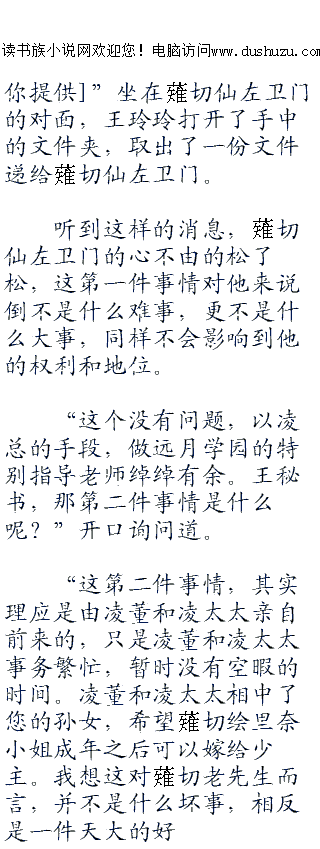 读书族小说网欢迎您！电脑访问www.dushuzu.com
你提供]”坐在薙切仙左卫门
的对面，王玲玲打开了手中
的文件夹，取出了一份文件
递给薙切仙左卫门。
听到这样的消息，薙切
仙左卫门的心不由的松了
松，这第一件事情对他来说
倒不是什么难事，更不是什
么大事，同样不会影响到他
的权利和地位。
“这个没有问题，以凌
总的手段，做远月学园的特
别指导老师绰绰有余。王秘
书，那第二件事情是什么
呢？”开口询问道。
“这第二件事情，其实
理应是由凌董和凌太太亲自
前来的，只是凌董和凌太太
事务繁忙，暂时没有空暇的
时间。凌董和凌太太相中了
您的孙女，希望薙切绘里奈
小姐成年之后可以嫁给少
主。我想这对薙切老先生而
言，并不是什么坏事，相反
是一件天大的好